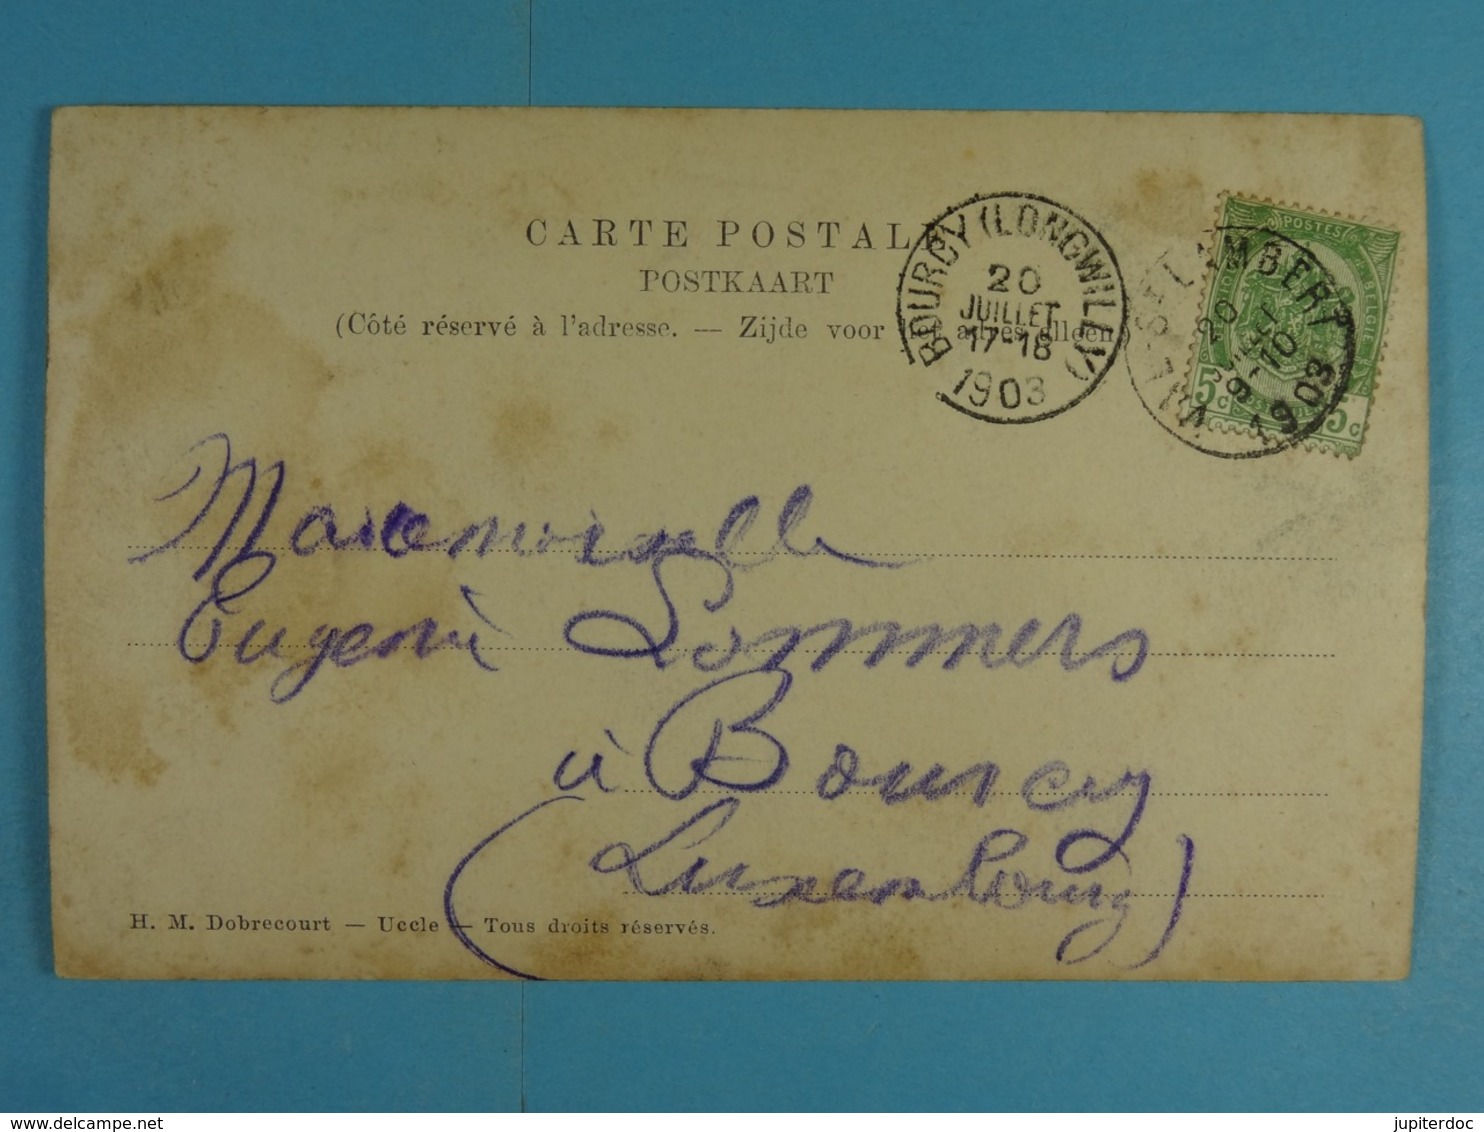 CARTE POSTALE
POSTKAART
(Côté réservé à l'adresse. — Zijde voor het adres alleen)
BOURCY (LONGWILLEY)
20
JUILLET
17-18
1903
VILLERS LAMBERT
20
JUILLET
9-10
1903
POSTES
BELGIE
5c 5c
Mademoiselle
Eugenie Sommers
à Bourcy
(Luxembourg)
H. M. Dobrecourt — Uccle — Tous droits réservés.
jupiterdoc